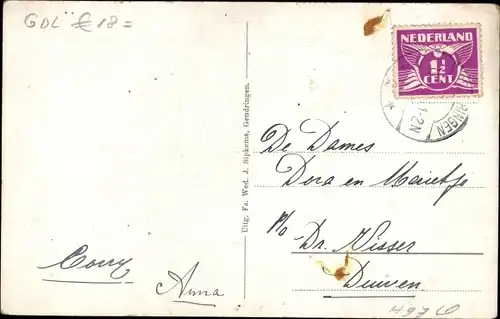 GDL € 18 =
NEDERLAND
1½
CENT
RINGEN
1-2N
Uitg. Fa. Wed. J. Sipkema, Gendringen.
De Dames
Dora en Marietje
p/o
Dr. Visser
Duiven
Corry
Anna